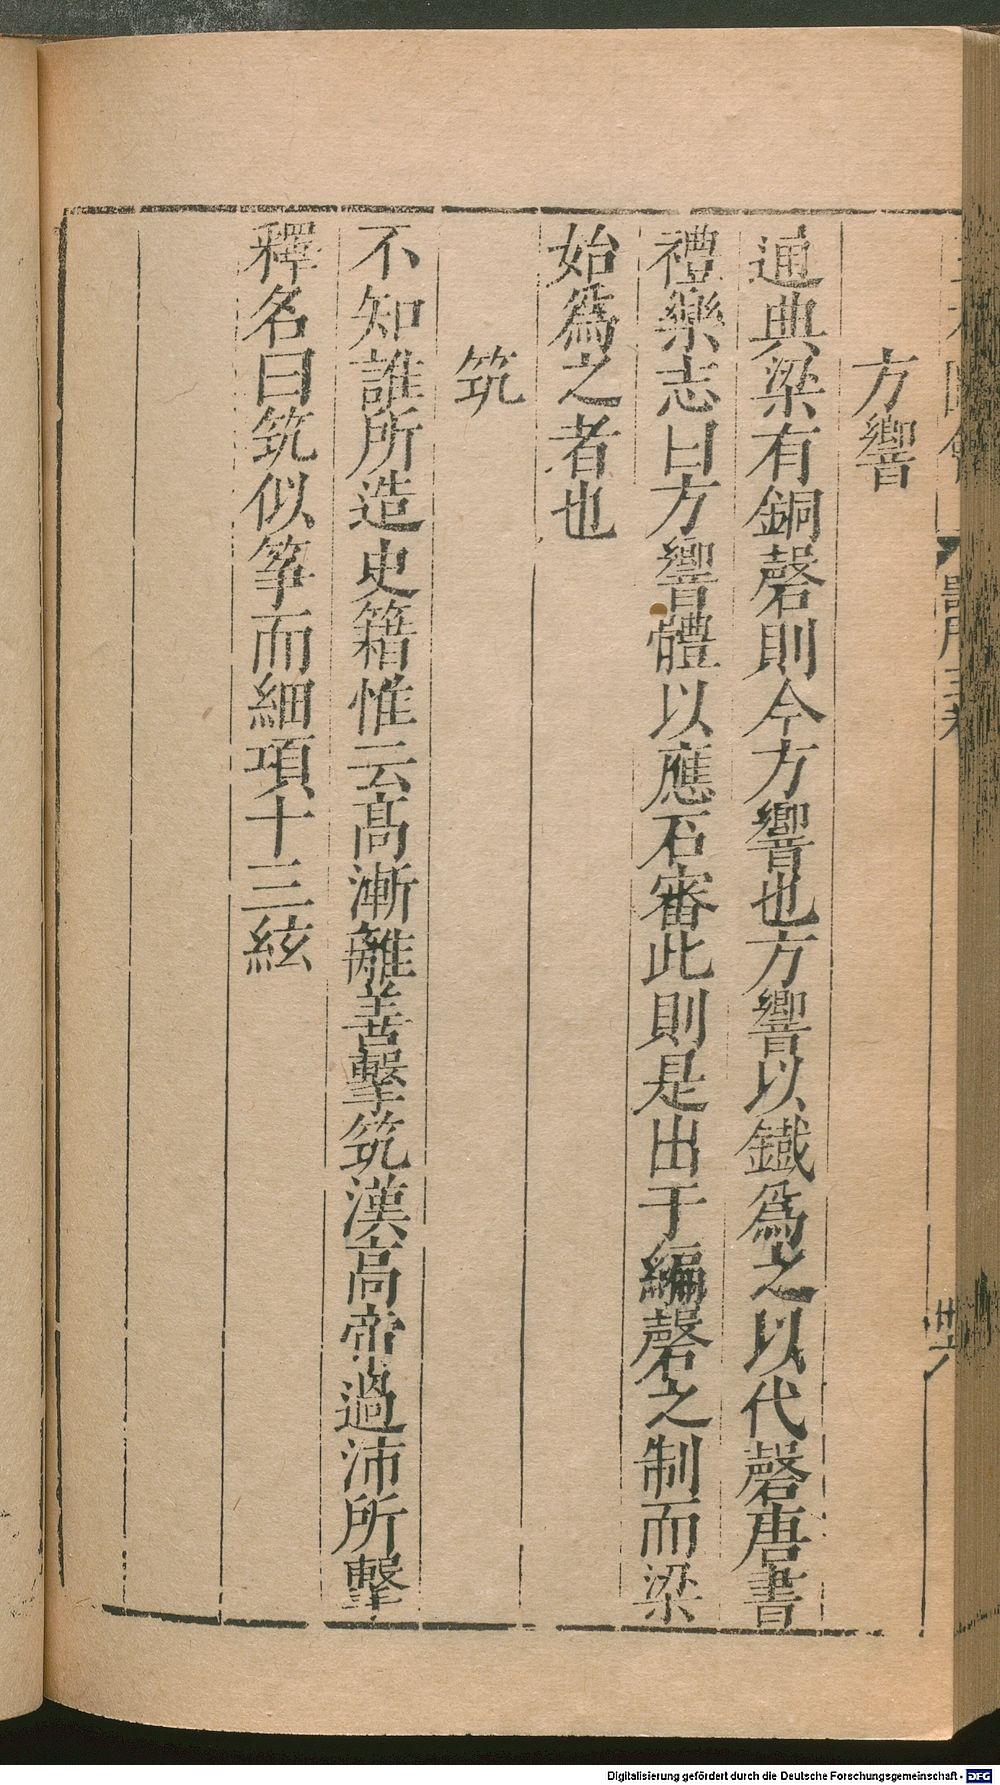 方響
通典梁有銅磬則今方響也方響以鐵為之以代磬唐書
禮樂志曰方響體以應石審此則是出于編磬之制而梁
始為之者也
筑
不知誰所造史籍惟云高漸離善擊筑漢高帝過沛所擊
釋名曰筑似箏而細項十三絃
Digitalisierung gefördert durch die Deutsche Forschungsgemeinschaft - DFG